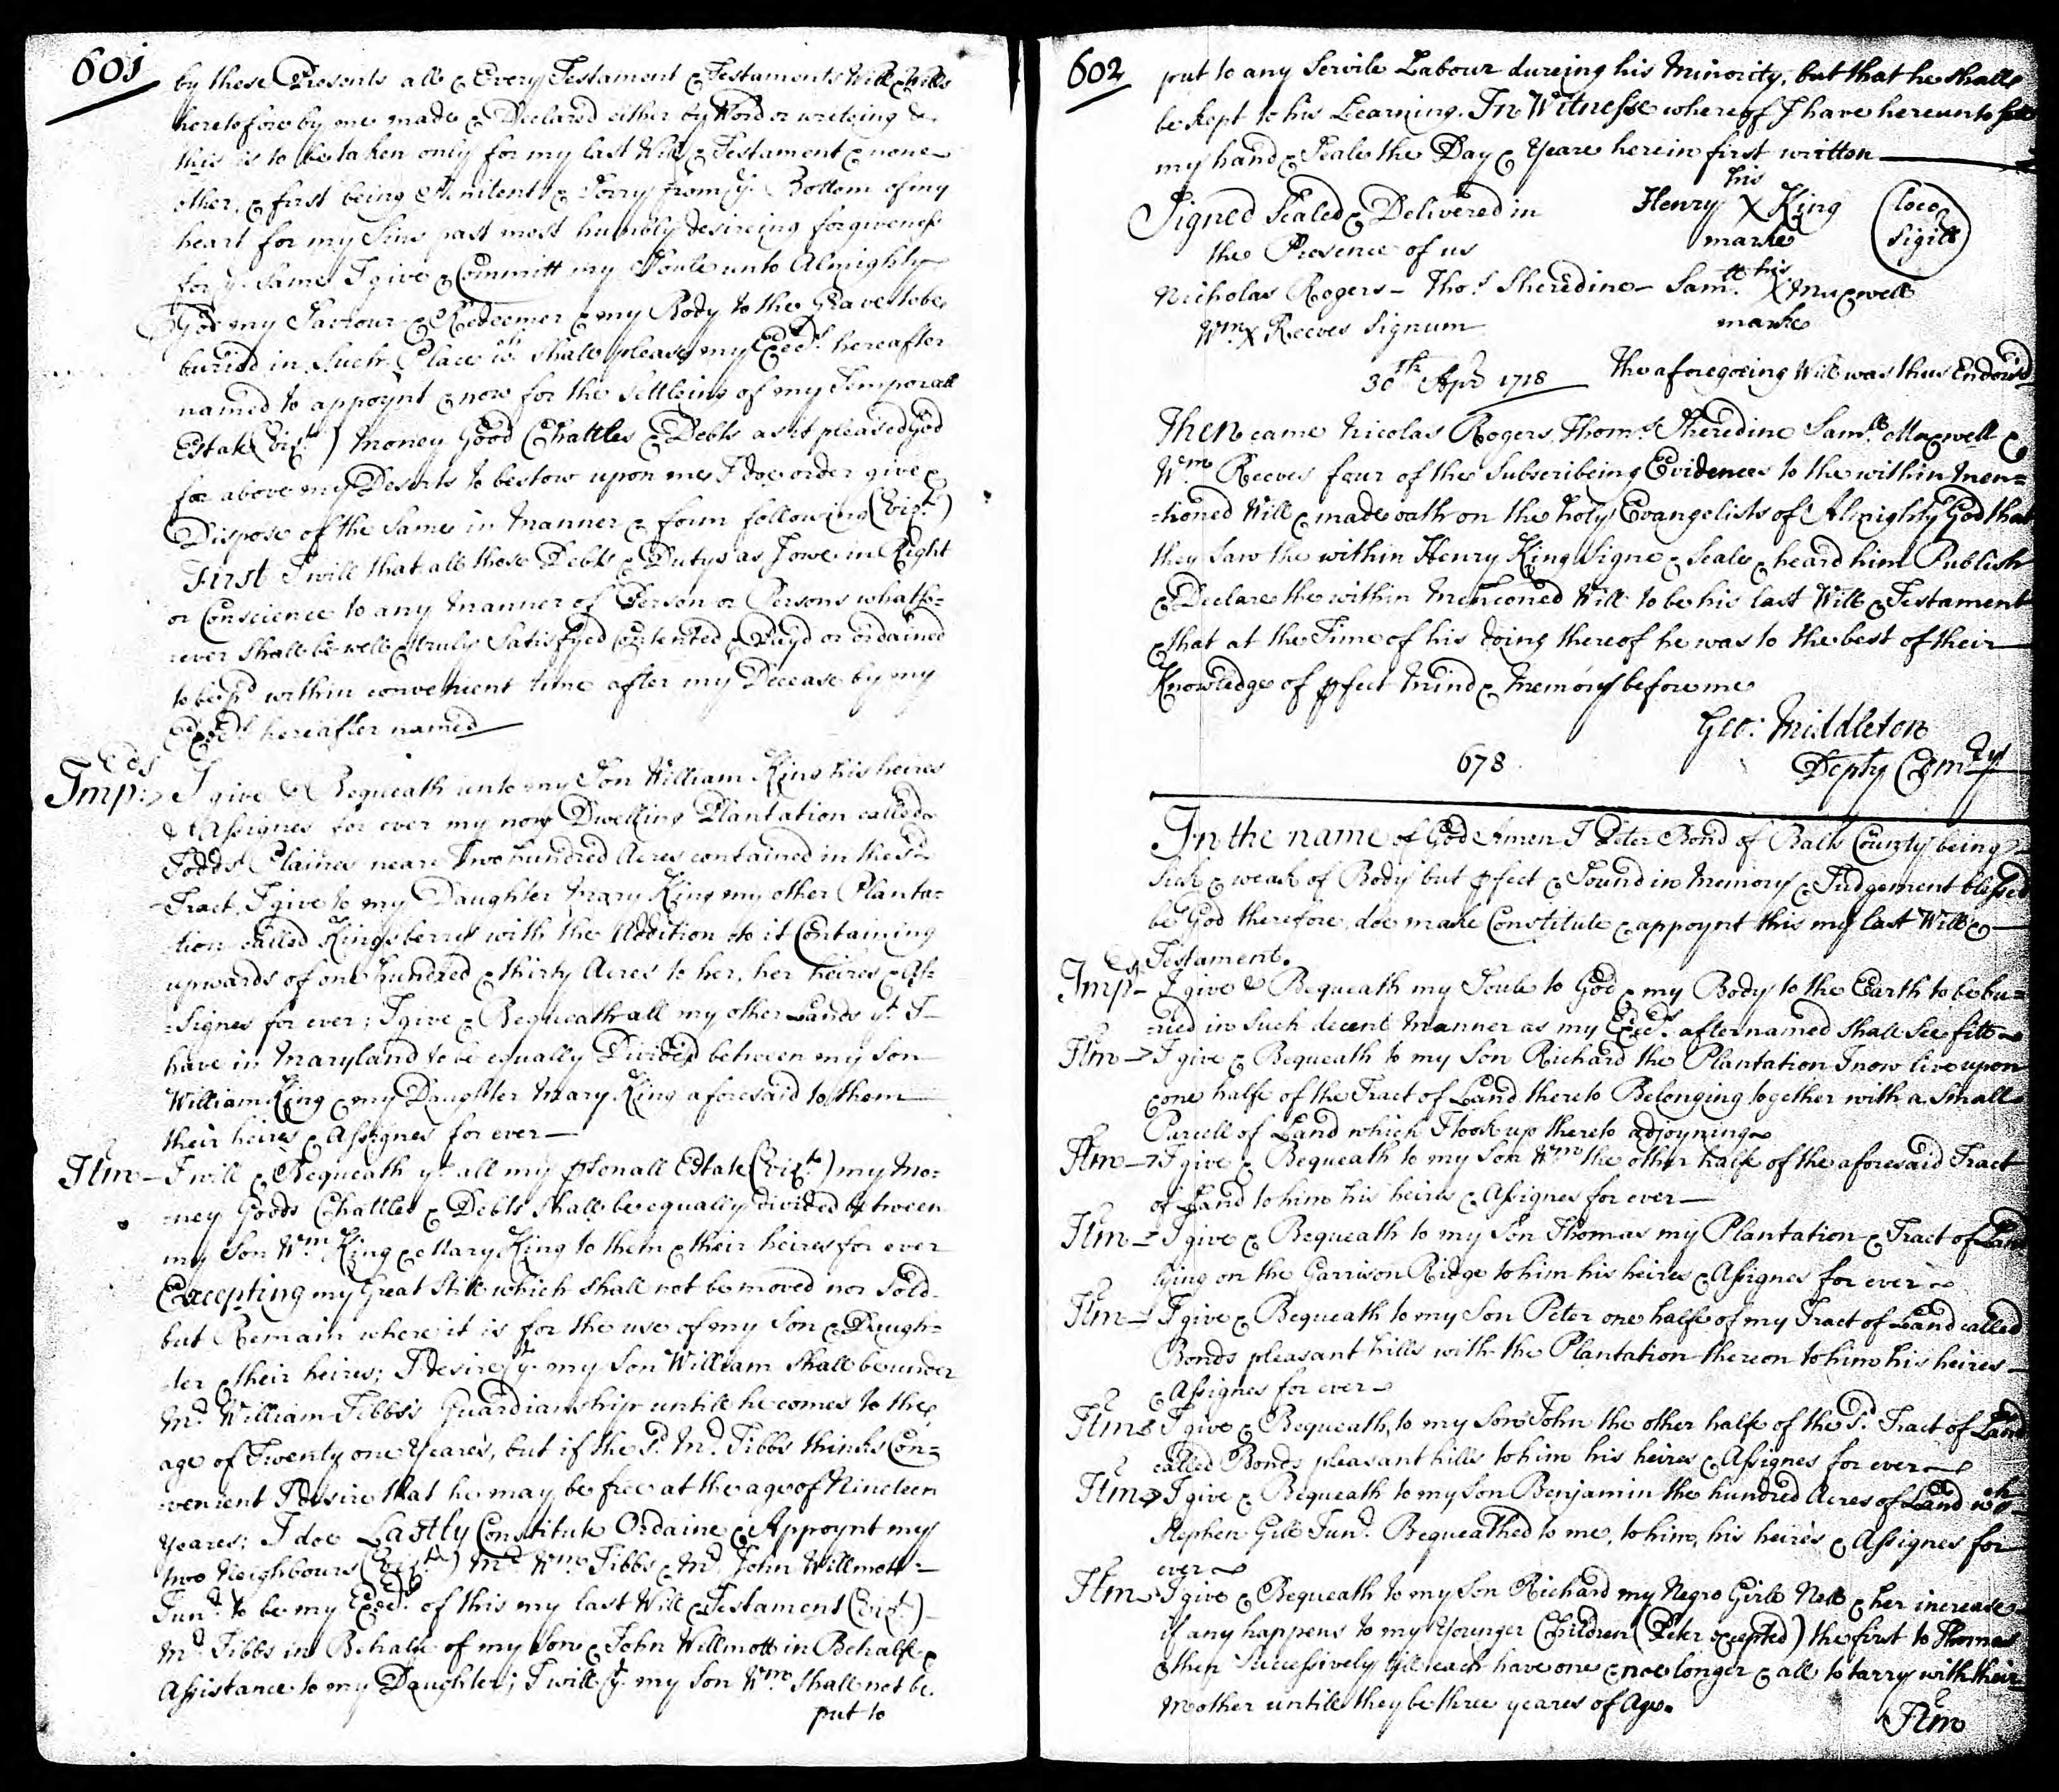 601
by these Presents all & Every Testament & Testaments Will & Wills
heretofore by me made & Declared either by Word or writeing &
this is to be taken only for my last Will & Testament & none
other, & first being Penitent & Sorry from ye. Bottom of my
heart for my Sins past most humbly desireing forgiveness
for ye. Same I give & Committ my Soule unto Almighty
God my Saviour & Redeemer & my Body to the Grave to be
buried in Such Place wch. shall please my Exec:rs hereafter
named to appoynt & now for the Setleing of my Temporall
Estate (vizt.) money Good Chattles & Debts as it pleased God
far above my Deserts to bestow upon me I doe order give &
Dispose of the Same in manner & form following (vizt.)
First I will that all those Debts & Dutys as I owe in Right
or Conscience to any manner of Person or Persons whatso=
=ever Shall be well & truly Satisfyed Contented & Payd or ordained
to be pd. within convenient time after my Decease by my
Exec:rs hereafter named
Imp:s I give & Bequeath unto my Son William King his heires
& Assignes for ever my now Dwelling Plantation called
Todds Plaines neare Two hundred Acres contained in the sd.
Tract, I give to my Daughter Mary King my other Planta=
=tion called Kingsberry with the Addition to it Containing
upwards of one hundred & thirty Acres to her, her heires & As=
=signes for ever; I give & Bequeath all my other Lands yt. I
have in Maryland to be equally Divided between my Son
William King & my Daughter Mary King aforesaid to them
their heires & Assignes for ever
Itm I will & Bequeath yt. all my psonall Estate (vizt.) my mo=
=ney Goods Chattles & Debts Shall be equally divided between
my Son Wm. King & Mary King to them & their heires for ever
Excepting my Great Still which shall not be moved nor Sold
but Remain where it is for the use of my Son & Daugh=
=ter & their heires; I desire yt. my Son William Shall be under
Mr. William Tibbs's Guardianship untill he comes to the
age of Twenty one Yeares, but if the sd. Mr. Tibbs thinks Con=
=venient I desire that he may be free at the age of Nineteen
yeares; I doe Lastly Constitute Ordaine & Appoynt my
two Neighbours (vizt.) Mr. Wm. Tibbs & Mr. John Willmott
Junr. to be my Exec:rs of this my last Will & Testament (vizt.)
Mr. Tibbs in Behalfe of my Son & John Willmott in Behalfe &
Assistance to my Daughter; I will yt. my Son Wm. Shall not be
put to
602
put to any Servile Labour dureing his Minority, but that he shall
be Kept to his Learning. In Witnesse whereof I have hereunto set
my hand & Seale the Day & Yeare herein first written
his
Signed Sealed & Delivered in Henry X King (loco
the Presence of us marke Sigill)
Nicholas Rogers - Tho:s Sheredine - Sam:ll his X Maxwell
Wm. X Reeves Signum marke
30th Apr 1718 The aforegoeing Will was thus Endors'd
Then came Nicolas Rogers, Thom:s Sheredine Sam:ll Maxwell &
Wm. Reeves four of the Subscribeing Evidences to the within Men=
=tioned Will & made oath on the holy Evangelists of Almighty God that
they Saw the within Henry King Signe & Seale & heard him Publish
& Declare the within Mencioned Will to be his last Will & Testament
& that at the Time of his doing thereof he was to the best of their
Knowledge of pfect Mind & Memory before me
Geo: Middleton
678 Depty Com:ry
In the name of God Amen I Peter Bond of Balt County being
Sick & weak of Body but pfect & Sound in Memory & Judgement blessed
be God therefore, doe make Constitute & appoynt this my last Will &
Testament.
Imps I give & Bequeath my Soule to God & my Body to the Earth to be bu=
=ried in Such decent Manner as my Exec:rs after named Shall See fitt
Itm I give & Bequeath to my Son Richard the Plantation I now live upon
& one halfe of the Tract of Land thereto Belonging together with a Small
Parcell of Land which I took up thereto adjoyning
Itm I give & Bequeath to my Son Wm. the other halfe of the aforesaid Tract
of Land to him his heires & Assignes for ever
Itm I give & Bequeath to my Son Thomas my Plantation & Tract of Land
lying on the Garrison Ridge to him his heires & Assignes for ever
Itm I give & Bequeath to my Son Peter one halfe of my Tract of Land called
Bonds pleasant hills with the Plantation thereon to him his heires
& Assignes for ever
Itm I give & Bequeath, to my Son John the other halfe of the sd. Tract of Land
called Bonds pleasant hills to him his heires & Assignes for ever
Itm I give & Bequeath to my Son Benjamin the hundred Acres of Land wch
Stephen Gill Junr. Bequeathed to me, to him, his heires & Assignes for
ever
Itm I give & Bequeath to my Son Richard my Negro Girle Nell & her increase
if any happens to my Younger Children (Peter excepted) the first to Thomas
& then Successively till each have one & noe longer & all to tarry with their
Mother untill they be three yeares of Age.
Itm